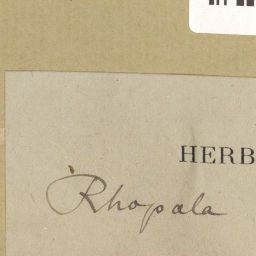 HERB
Rhopala